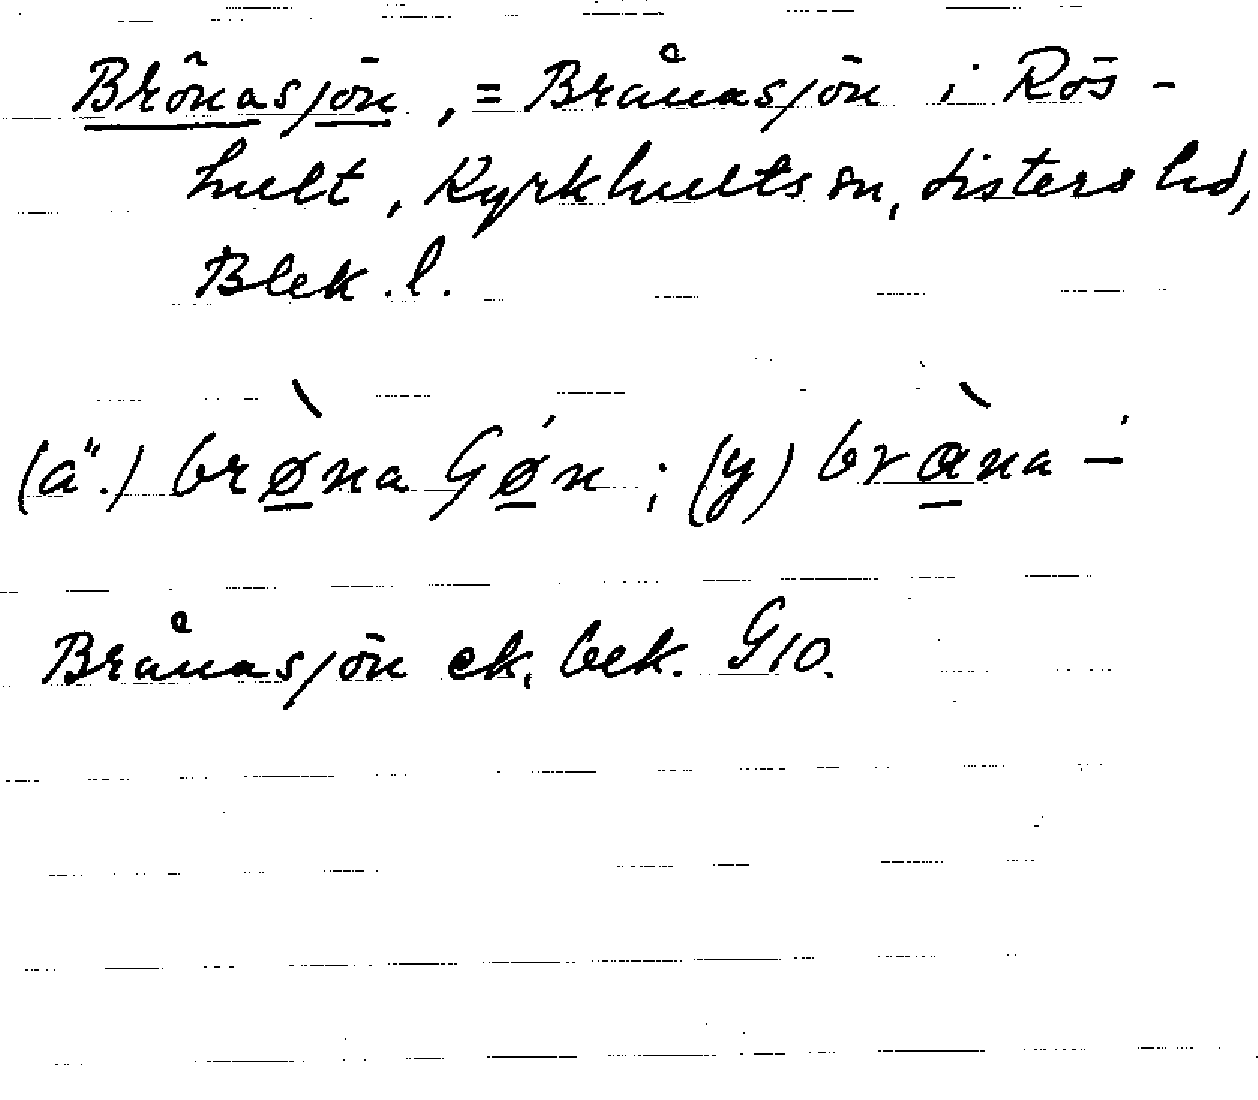 Brönasjön, = Brånasjön i Rös-
hult, Kyrkhults sn, Listers hd,
Blek. l.
(ä.) brøna Gøn ; (y) bråna -
Brånasjön ek. bek. G10.